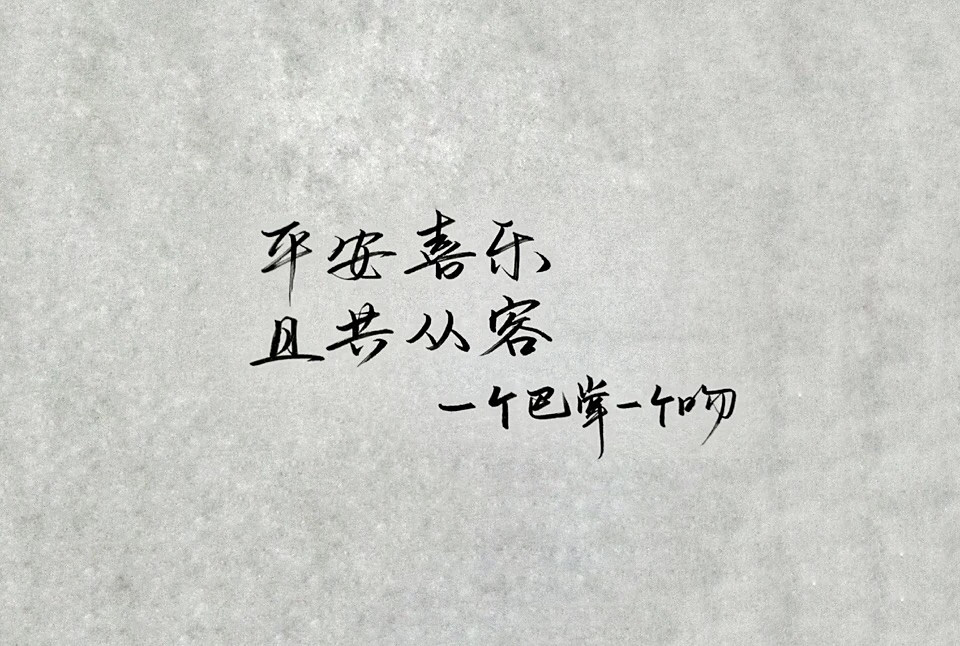 平安喜乐
且共从容
一个巴掌一个吻